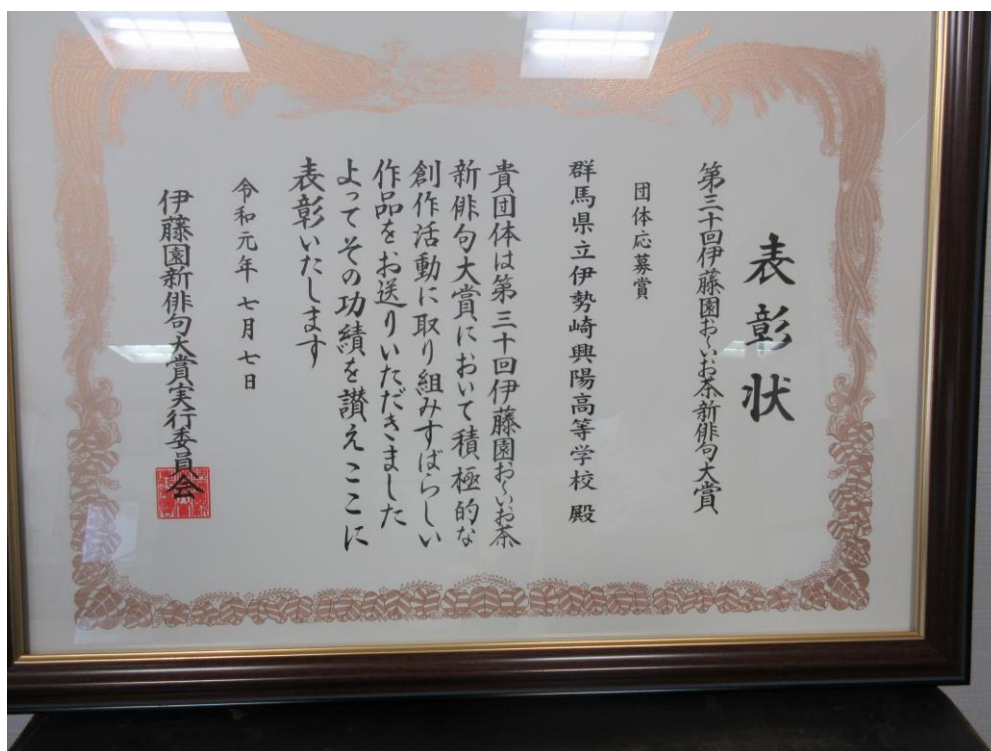 表彰状
第三十回伊藤園お〜いお茶新俳句大賞
団体応募賞
群馬県立伊勢崎興陽高等学校 殿
貴団体は第三十回伊藤園お〜いお茶
新俳句大賞において積極的な
創作活動に取り組みすばらしい
作品をお送りいただきました
よってその功績を讃えここに
表彰いたします
令和元年 七月七日
伊藤園新俳句大賞実行委員会